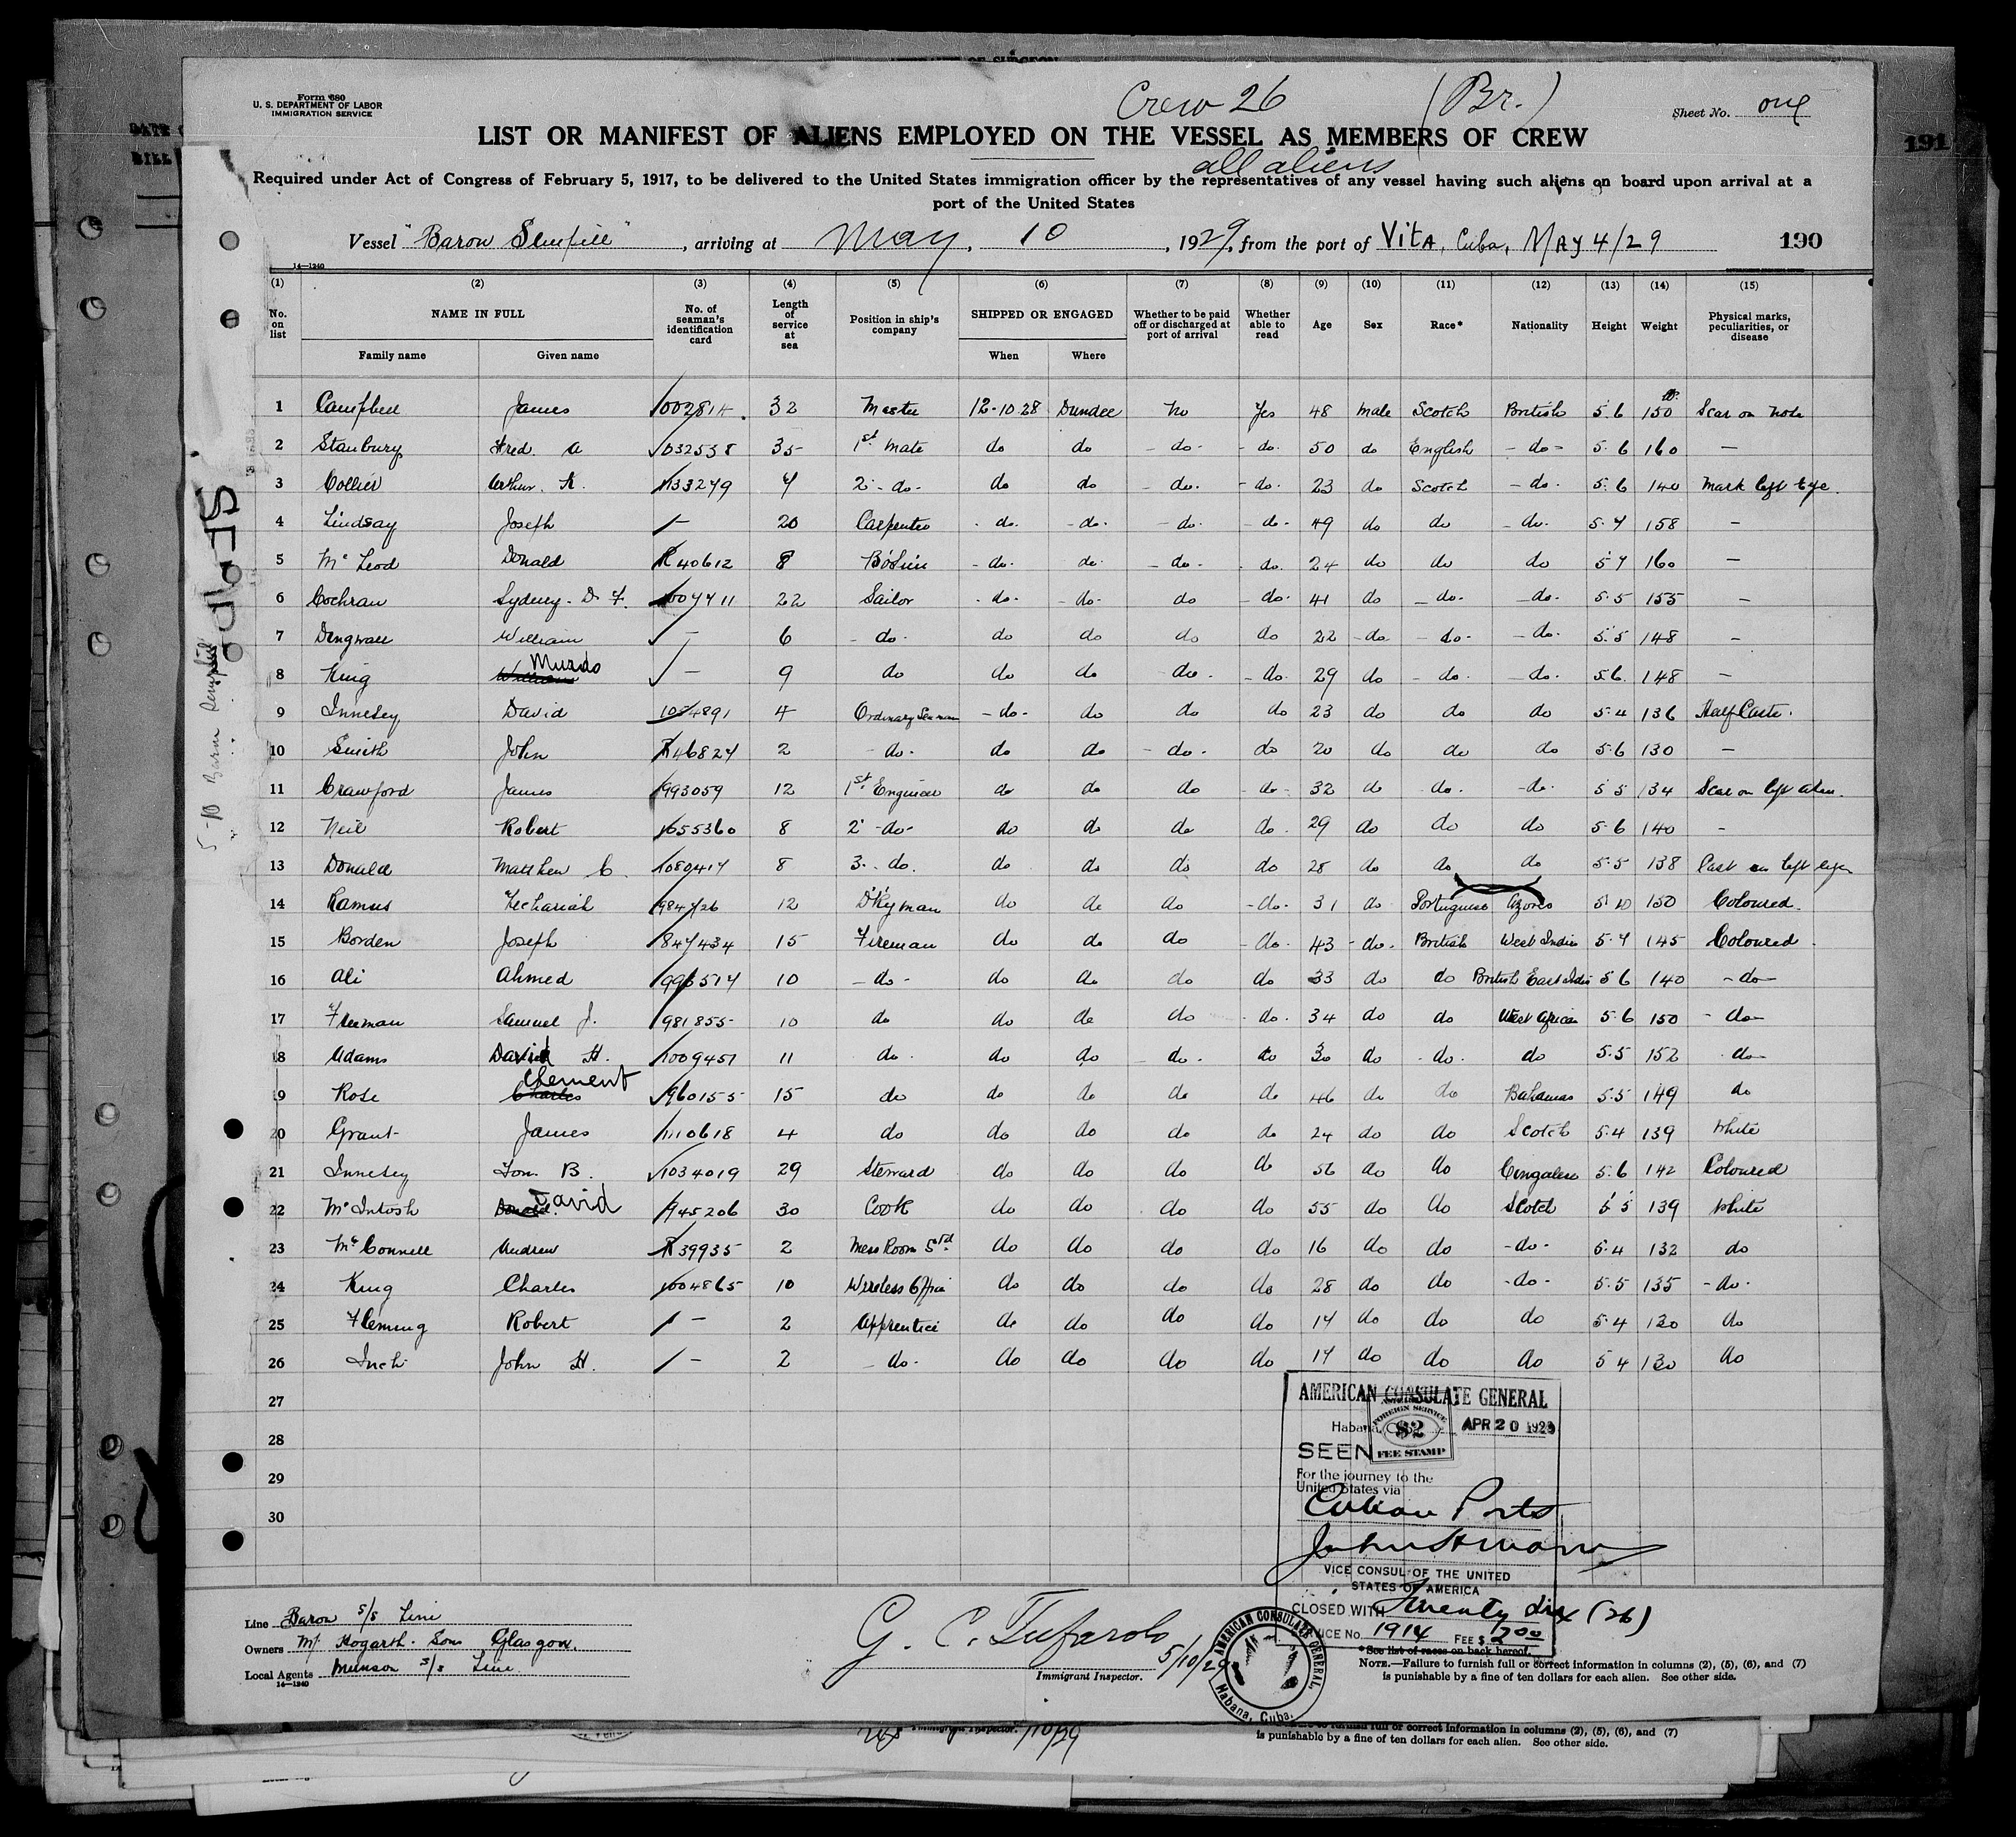 Form 680
U. S. DEPARTMENT OF LABOR
IMMIGRATION SERVICE
Crew 26 (Br.)
Sheet No. one
LIST OR MANIFEST OF ALIENS EMPLOYED ON THE VESSEL AS MEMBERS OF CREW
all aliens
191
Required under Act of Congress of February 5, 1917, to be delivered to the United States immigration officer by the representatives of any vessel having such aliens on board upon arrival at a
port of the United States
Vessel "Baron Sempill", arriving at May, 10, 1929, from the port of Vita, Cuba, MAY 4/29 190
14—1240
(1) (2) (3) (4) (5) (6) (7) (8) (9) (10) (11) (12) (13) (14) (15)
No. on list NAME IN FULL No. of seaman's identification card Length of service at sea Position in ship's company SHIPPED OR ENGAGED Whether to be paid off or discharged at port of arrival Whether able to read Age Sex Race* Nationality Height Weight Physical marks, peculiarities, or disease
Family name Given name When Where
1 Campbell James 1002814 32 Master 12-10-28 Dundee No Yes 48 male Scotch British 5.6 150 Scar on nose
2 Stanbury Fred. A 1032538 35 1st Mate do do - do - - do. 50 do English - do - 5.6 160 —
3 Collier Arthur. K. 1133279 4 2 - do - do do - do. - do. 23 do Scotch - do. 5.6 140 Mark left Eye.
4 Lindsay Joseph — 20 Carpenter - do. - do. - do. - do. 49 do do - do. 5.7 158 —
5 McLeod Donald R 40612 8 Bo'sun - do. do. - do. do. 24 do do do 5.7 160 —
6 Cochran Sydney. D. F. 1007711 22 Sailor - do. - do. do - do. 41 do - do. - do. 5.5 155 —
7 Dingwall William — 6 - do. do do do do 22 - do - do - - do. 5.5 148 —
8 King William Murdo — 9 do do do - do. - do. 29 do - do. - do. 5.6. 148 —
9 Innesey David 1084891 4 Ordinary Seaman - do - do do do 23 do do do 5.4 136 Half Caste.
10 Smith John R46824 2 - do. do do - do. do 20 do do do 5.6 130 —
11 Crawford James 993059 12 1st Engineer do do do - do - 32 do - do. - do. 5 5 134 Scar on left
12 Neil Robert 1055360 8 2 - do - do do do do. 29 do do do 5.6 140 -
13 Donald Matthew C. 1080417 8 3. - do. do do do do 28 do do do 5.5 138 Cast in left eye
14 Ramus Zechariah 984726 12 D'kyman do do do - do. 31 do Portuguese Azores 5.10 150 Coloured.
15 Borden Joseph 847434 15 Fireman do do do - do. 43 - do. British West Indies 5.7 145 Coloured
16 Ali Ahmed 996514 10 - do - do do do do 33 do do British East Indies 5 6 140 - do -
17 Freeman Samuel J. 981855 10 do do do do - do. 34 do do West African 5.6 150 - do -
18 Adams David H. 1009451 11 do. do do - do. do 30 do - do. do 5.5 152 - do -
19 Rose Charles Clement 960155 15 do do do do do 46 do do Bahamas 5.5 149 do
20 Grant James 1110618 4 do do do do do 24 do do Scotch 5.4 139 White
21 Innesey B. 1034019 29 Steward do do do do 56 do do Cingalese 5.6 142 Coloured
22 McIntosh Donald David 945206 30 Cook do do do do 55 do do Scotch 5 5 139 White
23 McConnell Andrew R 39935 2 Mess Room Std do do do do 16 do do - do - 5.4 132 do
24 King Charles 1004865 10 Wireless do do do do 28 do do - do - 5.5 135 - do.
25 Fleming Robert — 2 Apprentice do do do do 17 do do do 5.4 130 do
26 Inch John H. — 2 - do. do do do do 17 do do do 5 4 130 do
27
28
29
30
AMERICAN CONSULATE GENERAL
Habana, Cuba APR 20 1929
FOREIGN SERVICE
$2
FEE STAMP
SEEN
For the journey to the
United States via
Cuban Ports
VICE CONSUL OF THE UNITED
STATES OF AMERICA
CLOSED WITH Twenty six (26)
SERVICE No. 1914 FEE $ 2.00
AMERICAN CONSULATE GENERAL.
Habana, Cuba.
Line Baron s/s Line
Owners Mr Hogarth. Sons Glasgow.
Local Agents Munson s/s Line
14—1240
G. C. Tufarolo 5/10/29
Immigrant Inspector.
*See list of races on back hereof.
NOTE.—Failure to furnish full or correct information in columns (2), (5), (6), and (7)
is punishable by a fine of ten dollars for each alien. See other side.
full or correct information in columns (2), (5), (6), and (7)
is punishable by a fine of ten dollars for each alien. See other side.